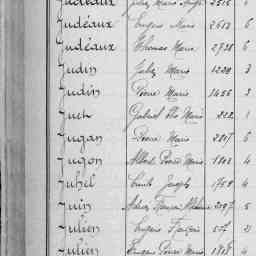 Judéaux Jules Marie Ange 2515 6
Judéaux Eugène Marie 2613 6
Judéaux Thomas Marie 2738 6
Judin Jules Marie 1229 3
Judin Pierre Marie 3456 3
Juet Gabriel Marie 222 1
Jugan Pierre Marie 2307 6
Jugon Albert Pierre Marie 1803 4
Juhel Joseph 1758 4
Juin François 2397 5
Julien Eugène François 557 2
Julien Eugène Pierre Marie 4